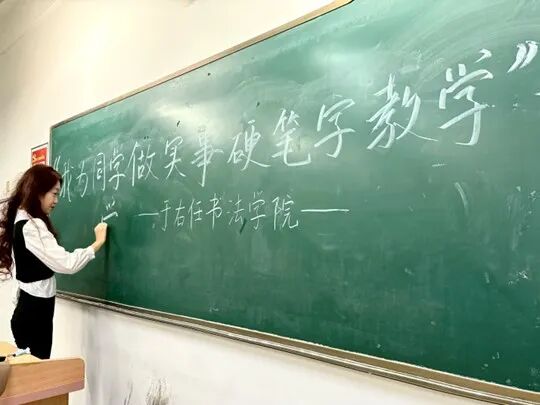 “我为同学做实事硬笔字教学”
——于右任书法学院——